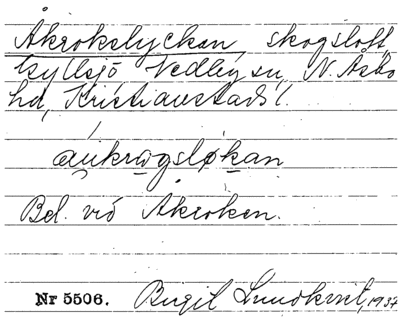 Åkrokslyckan, skogsloft,
Kyllsjö Vedby sn, N. Åsbo
hd, Kristianstads l.
áu̯krωgsløkan
Bel. vid Åkroken.
Nr 5506. Birgit Lundkvist, 1937